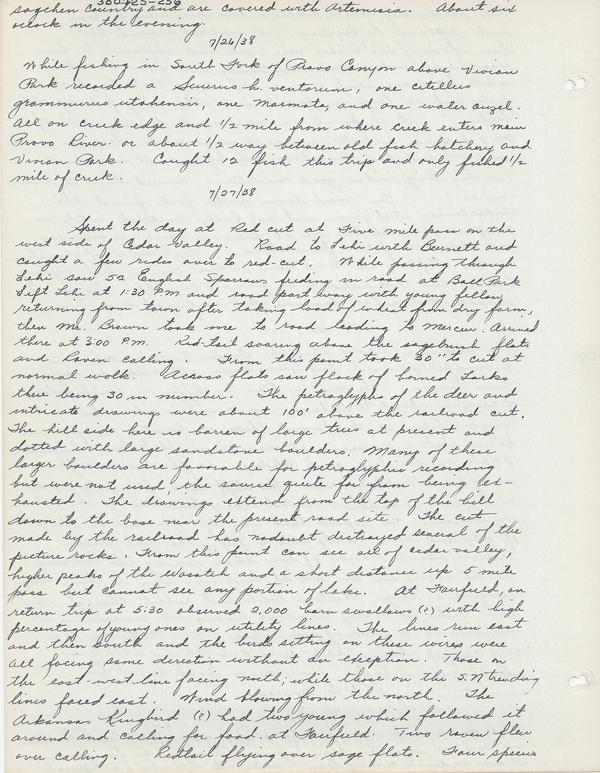 300 + 25-256
sagehen country and are covered with Artemisia. About six
oclock in the evening.
7/26/38
While fishing in South Fork of Provo Canyon above Vivian
Park recorded a Sciurus h. ventorum, one citellus
grammurus utahensis, one Marmota, and one water ouzel.
All on creek edge and 1/2 mile from where creek enters main
Provo River. or about 1/2 way between old fish hatchery and
Vivian Park. Caught 12 fish this trip and only fished 1/2
mile of creek.
7/27/38
Spent the day at Red cut at Five mile pass on the
west side of Cedar Valley. Road to Lehi with Burnett and
caught a few rides over to red-cut. While passing through
Lehi saw 52 English Sparrows feeding in road at Ball Park
Left Lehi at 1:30 P.M and road part way with young fellow
returning from town after taking load of wheat from dry farm,
then Mr. Brown took me to road leading to Mercur. Arrived
there at 3:00 P.M. Red-tail soaring above the sagebrush flats
and Raven calling. From this point took 30" to cut at
normal walk. Across flats saw flock of horned Larks
there being 30 in number. The petroglyphs of the deer and
intricate drawings were about 100' above the railroad cut.
The hill side here is barren of large trees at present and
dotted with large sandstone boulders. Many of these
larger boulders are favorable for petroglyphic recording
but were not used, the source quite far from being ex-
hausted. The drawings extend from the top of the hill
down to the base near the present road site. The cut
made by the railroad has nodoubt destroyed several of the
picture rocks. From this point can see all of cedar valley,
higher peaks of the Wasatch and a short distance up 5 mile
pass but cannot see any portion of lake. At Fairfield, on
return trip at 5:30 observed 2,000 barn swallows (?) with high
percentage of young ones on utility lines. The lines run east
and then south and the birds sitting on these wires were
all facing same direction without an exception. Those on
the east-west line facing north; while those on the S.N trending
lines faced east. Wind blowing from the north. The
Arkansas Kingbird (?) had two young which followed it
around and calling for food. at Fairfield. Two raven flew
over calling. Redtail flying over sage flats. Four species